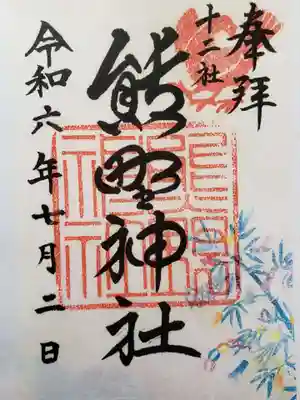 奉拝
十二社
熊野神社
令和六年七月二日
熊野神社